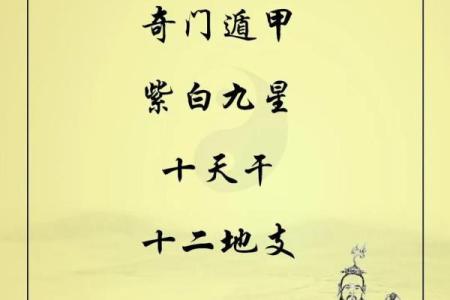 奇门遁甲
紫白九星
十天干
十二地支